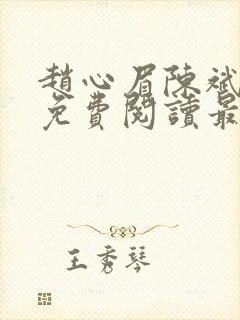 趙心眉陳斌
免費閱讀最
王秀琴